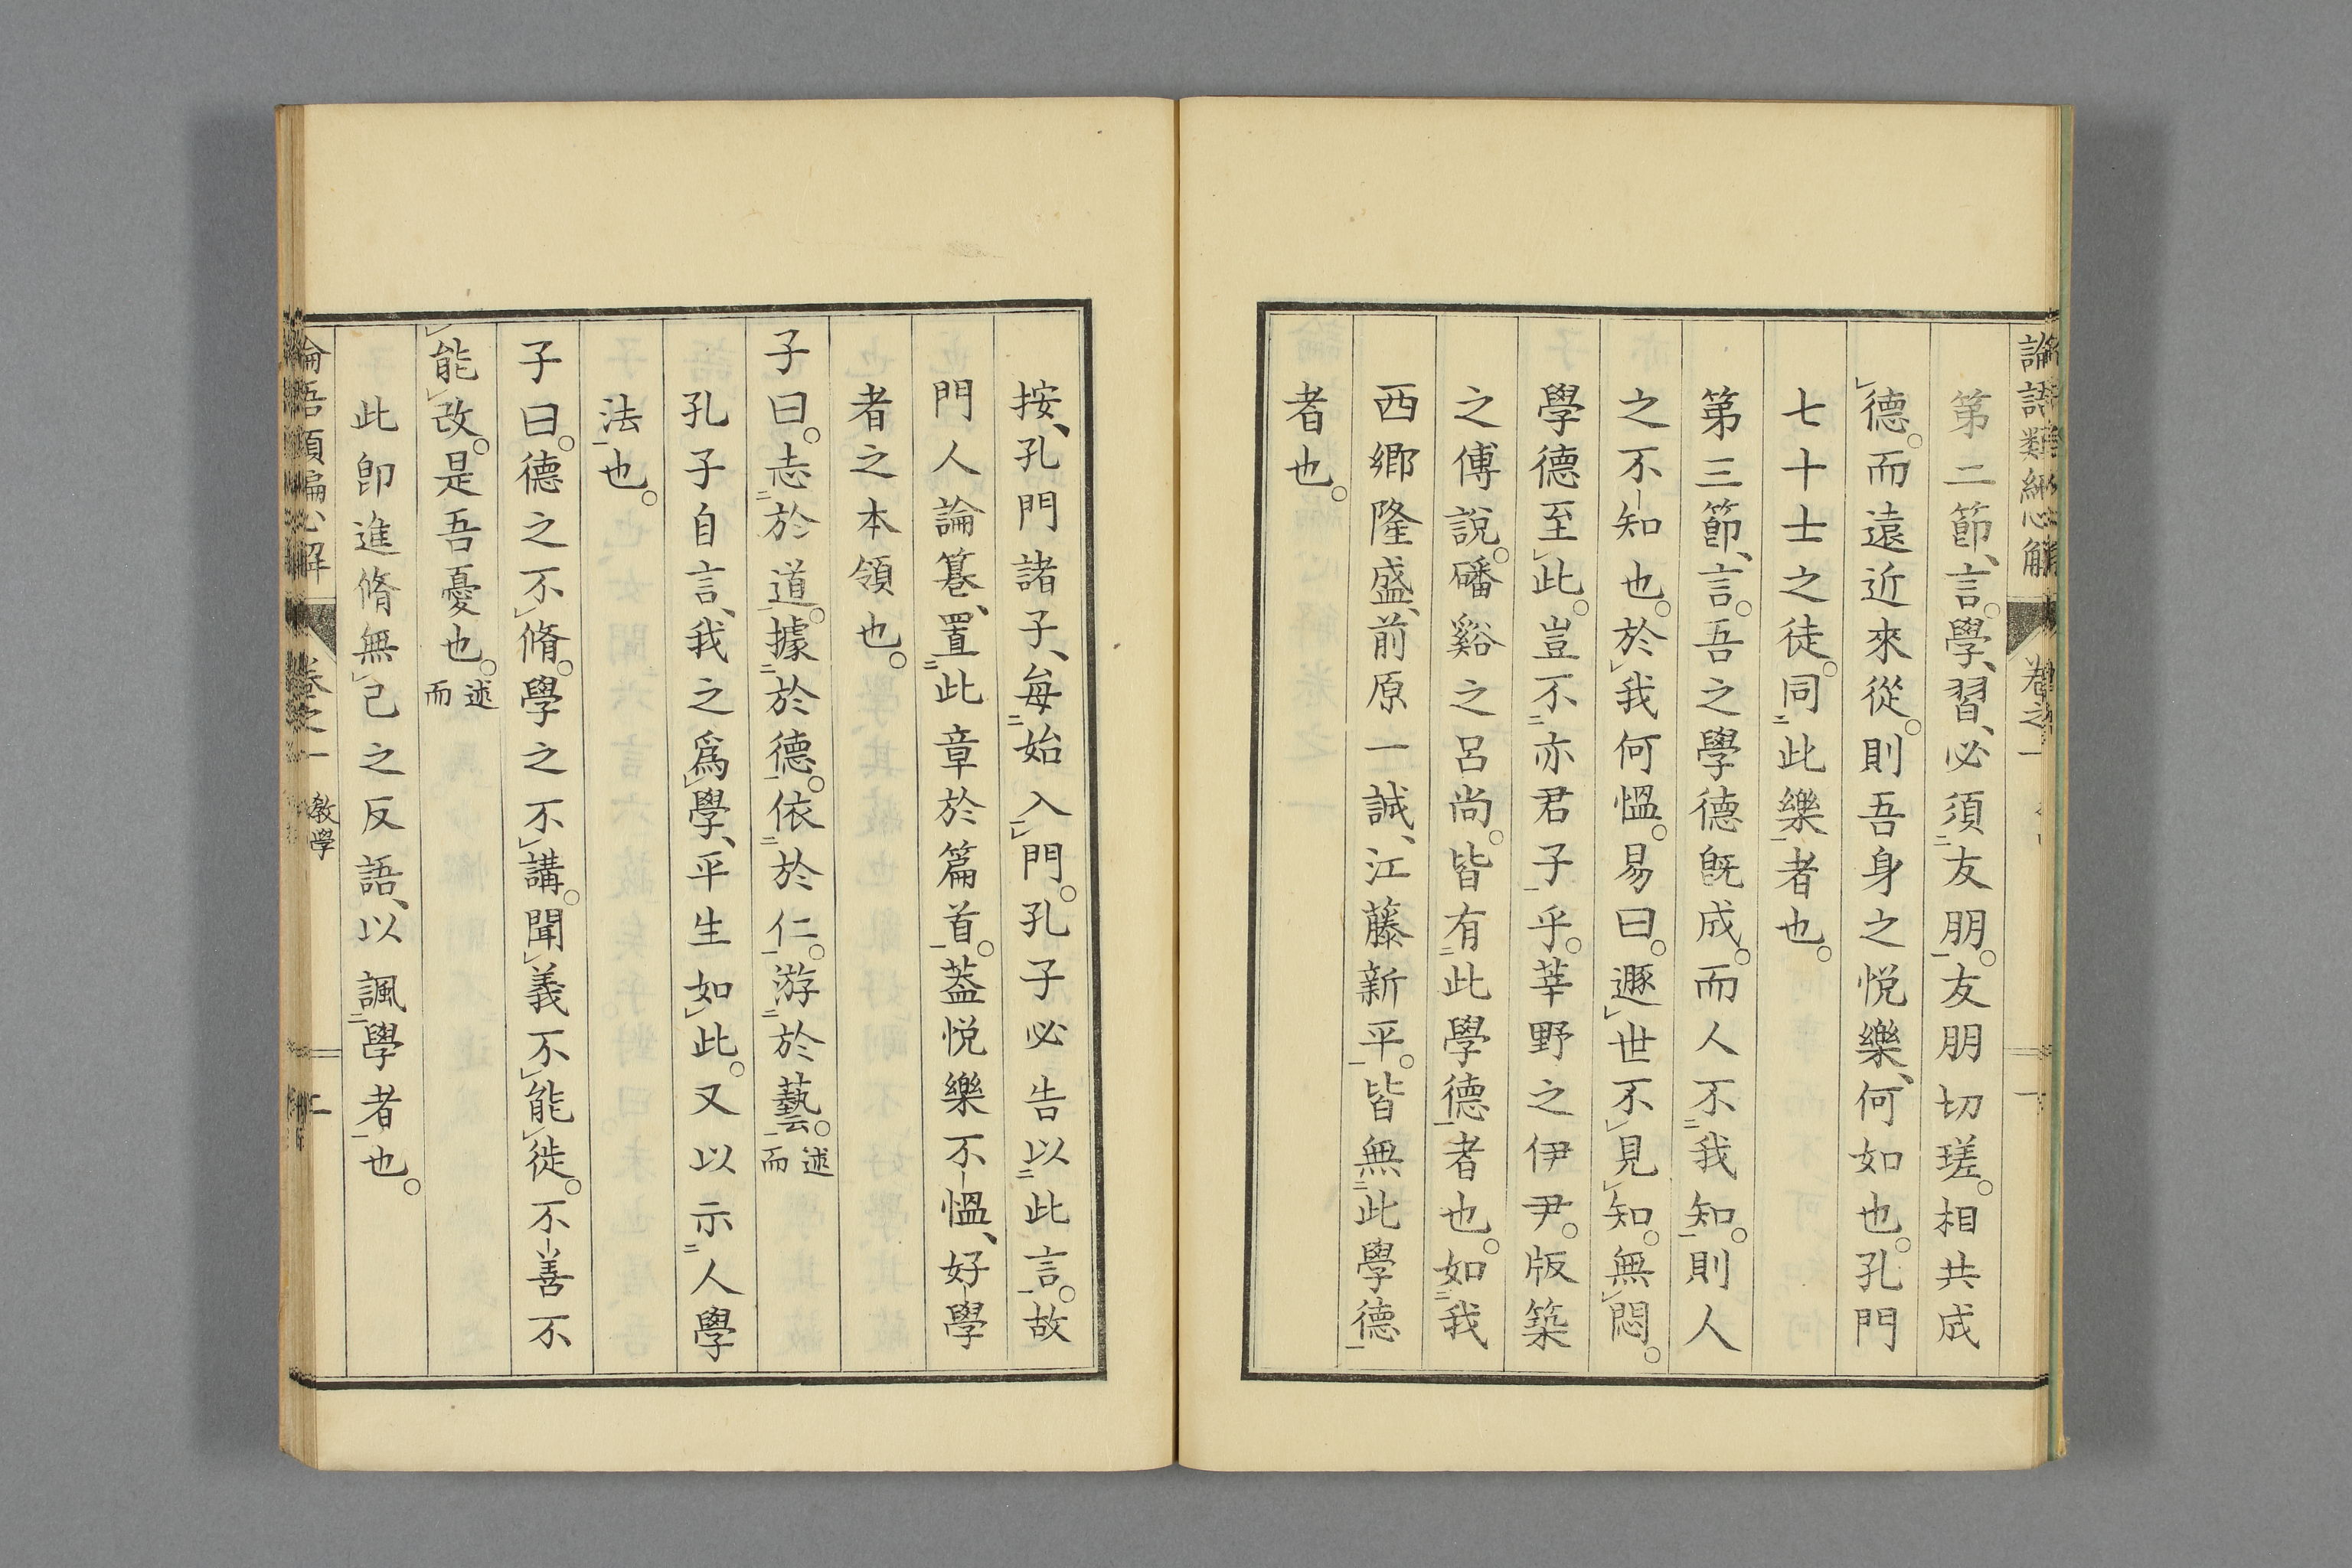 第二節、言。學、習、必須友朋。友朋切瑳。相共成
德。而遠近來從。則吾身之悅樂、何如也。孔門
七十士之徒。同此樂者也。
第三節、言。吾之學德既成。而人不我知。則人
之不知也。於我何慍。易曰。遯世不見知。無悶。
學德至此。豈不亦君子乎。莘野之伊尹。版築
之傅說。磻谿之呂尚。皆有此學德者也。如我
西郷隆盛、前原一誠、江藤新平。皆無此學德
者也。
按、孔門諸子、每始入門。孔子必告以此言。故
門人論篹、置此章於篇首。葢悅樂不慍、好學
者之本領也。
子曰。志於道。據於德。依於仁。游於藝。述而
孔子自言、我之爲學、平生如此。又以示人學
法也。
子曰。德之不脩。學之不講。聞義不能徙。不善不
能改。是吾憂也。述而
此卽進脩無己之反語、以諷學者也。
卷之一 教學 二